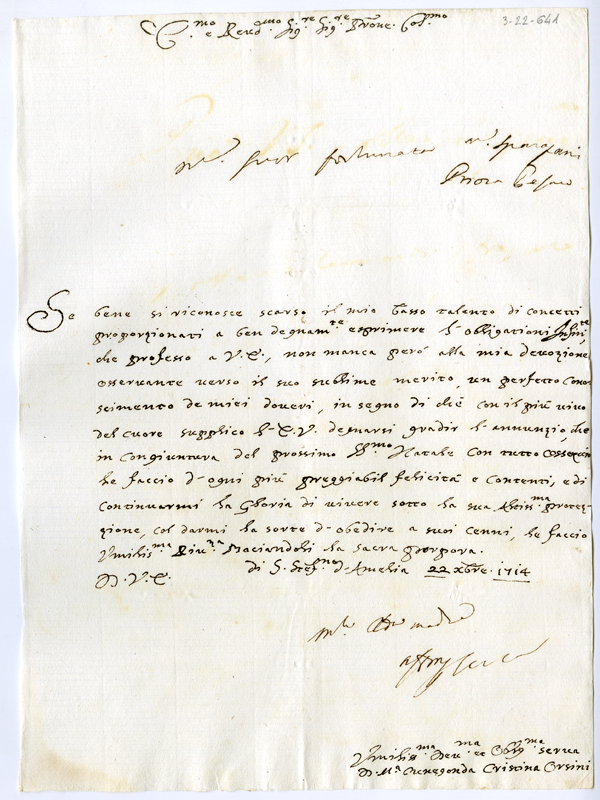 3-22-641
E.mo e Rever.mo Sig.re Sig.re Prone Col.mo
Suor fortunata
Se bene si riconosce scarso il mio basso talento di concetti
proporzionati a ben degnam.te esprimere l'obligationi Infinite,
che professo a V.E., non manca però alla mia devozione
osservante verso il suo sublime merito, un perfetto cono-
scimento de miei doveri, in segno di chè con il più vivo
del cuore supplico l'E.V. degnarsi gradir l'annunzio, che
in congiuntura del prossimo SS.mo Natale con tutto ossequio
le faccio d'ogni più preggiabil felicità e contenti, e di
continuarmi la Gloria di vivere sotto la sua Altiss.ma protez-
zione, col darmi la sorte d'obedire a suoi cenni, le faccio
Umilis.ma Riv.za Baciandoli la sacra porpora.
Di S. Stef.no d'Amelia 22 xbre. 1714
D.V.E.
Umilis.ma Dev.ma et Oblig.ma serva
D. M.a Cunegonda Cristina Orsini